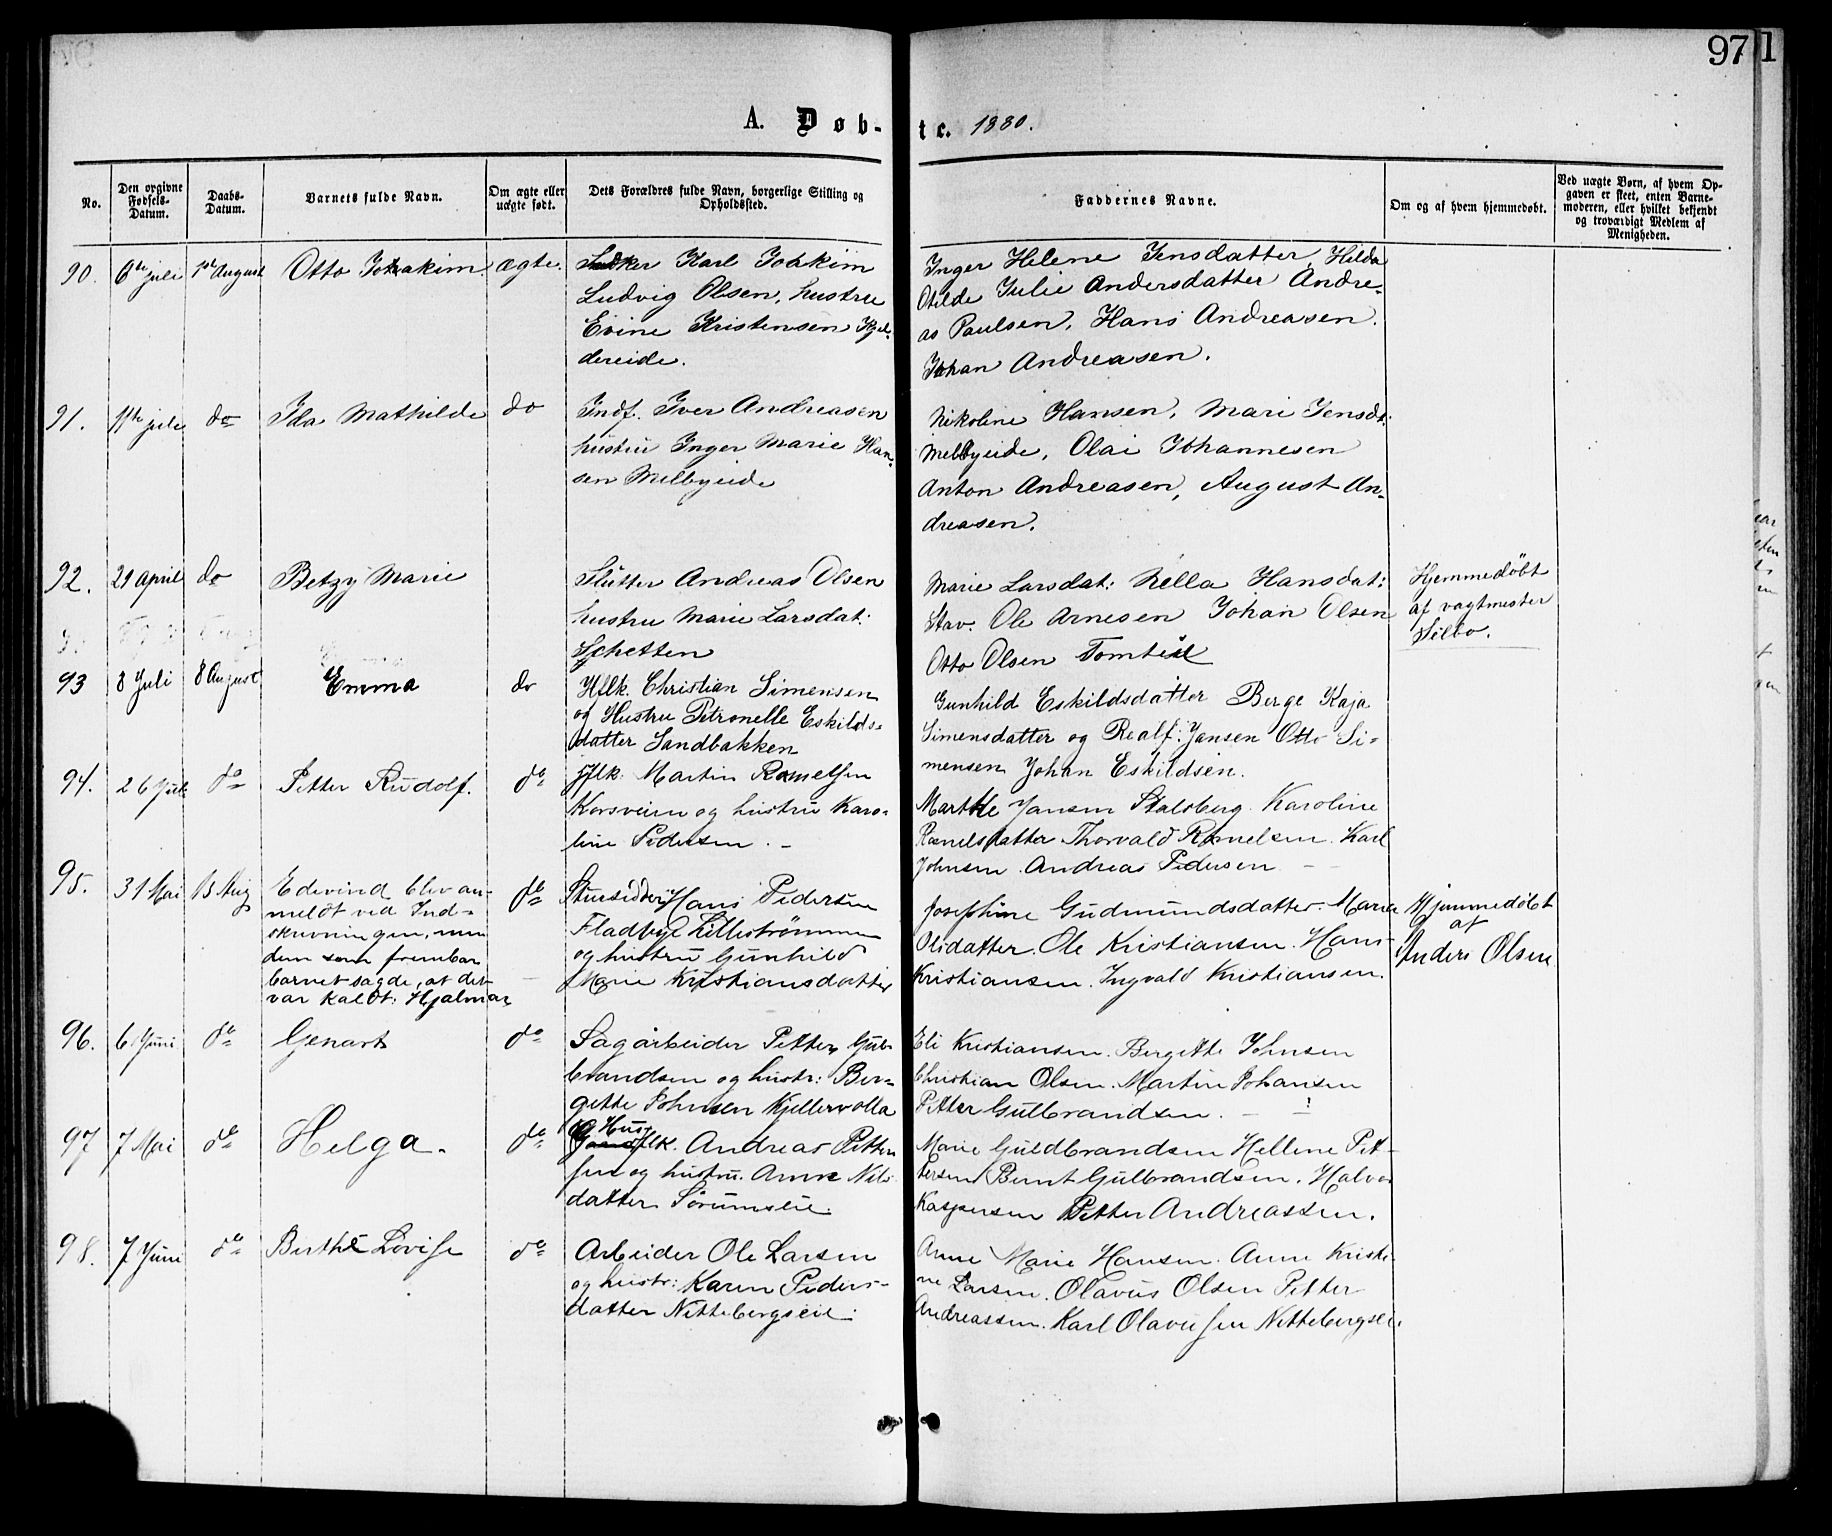 97
1
A. Døb-
te. 1880.
No.
Den opgivne Fødsels-Datum.
Daabs-Datum.
Barnets fulde Navn.
Om ægte eller uægte født.
Dets Forældres fulde Navn, borgerlige Stilling og Opholdssted.
Faddernes Navne.
Om og af hvem hjemmedøbt.
Ved uægte Børn, af hvem Op-
gaven er skeet, enten Barne-
moderen, eller hvilket bekjendt
og troværdigt Medlem af
Menigheden.
90. 6te juli 1ste August Otto Johakim ægte.
Karl Johkim
Ludvig Olsen, hustru
Evine Kristensen Kjel-
dereide.
Inger Helene Jensdatter, Hilda
Otilde Julie Andersdatter Andre-
as Paulsen, Hans Andreasen.
Johan Andreasen.
91. 11te juli do Ida Mathilde do
Indf. Iver Andreasen
hustru Inger Marie Han-
sen Melbyeide
Nikoline Hansen, Mari Jensdt.
Melbyeide, Olai Johannesen
Anton Andreasen, August An-
dreasen.
92. 29 April do Betzy Marie
Andreas Olsen
hustru Marie Larsdat:
Schetten
Marie Larsdat: Nella Hansdat:
Stav. Ole Arnesen Johan Olsen
Otto Olsen Tomter
Hjemmedøbt
af vagtmester
Silbo.
93 8 Juli 8 August Emma do
Hflk. Christian Simensen
og Hustru Petronelle Eskilds-
datter Sandbakken
Gunhild Eskildsdatter Berge Kaja
Simensdatter og Realf: Jansen Otto Si-
mensen Johan Eskildsen.
94. 26 Juli do Petter Rudolf. do
Hflk. Martin Romelsen
Korsveien og hustru Karo-
line Pedersen. -
Marthe Jansen Stalsberg. Karoline
Romelsdatter Thorvald Romelsen. Karl
Johnsen. Andreas Pedersen -
95. 31 Mai 15 Aug Edevind blev an-
meldt ved Ind-
skrivningen, men
den som frembar
barnet sagde, at det
var kaldt: Hjalmar
do
Hans Pedersen
Fladbye Lillestrømmen
og hustru Gunhild
Marie Kristiansdatter
Josephine Gudmundsdatter. Maren
Olsdatter. Ole Kristiansen. Hans
Kristiansen. Ingvald Kristiansen.
Hjemmedøbt
af
Anders Olsen
96. 6 Juni do Genart do
Sagarbeider Petter Gul-
brandsen og hustr: Ber-
gette Johnsen Kjellervolla
Eli Kristiansen. Bergette Johnsen
Christian Olsen. Martin Johansen
Petter Gulbrandsen. -
97 7 Mai do Helga. do
Husflk. Andreas Petter
sen og hustru. Anne Nils
datter Sørumseie.
Marie Guldbrandsen Hellene Pet-
tersen Bernt Gulbrandsen. Halvor
Kaspersen Petter Andreassen.
98. 7 Juni do Berthe Lovise do
Arbeider Ole Larsen
og hustr: Karen Peders-
datter Nittebergseie.
Anne Marie Hansen. Anne Kristi-
ne Larsen. Olavus Olsen Petter
Andreassen. Karl Olavesen Nittebergsei.